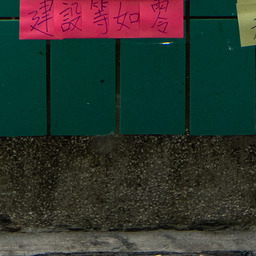 建設等如零